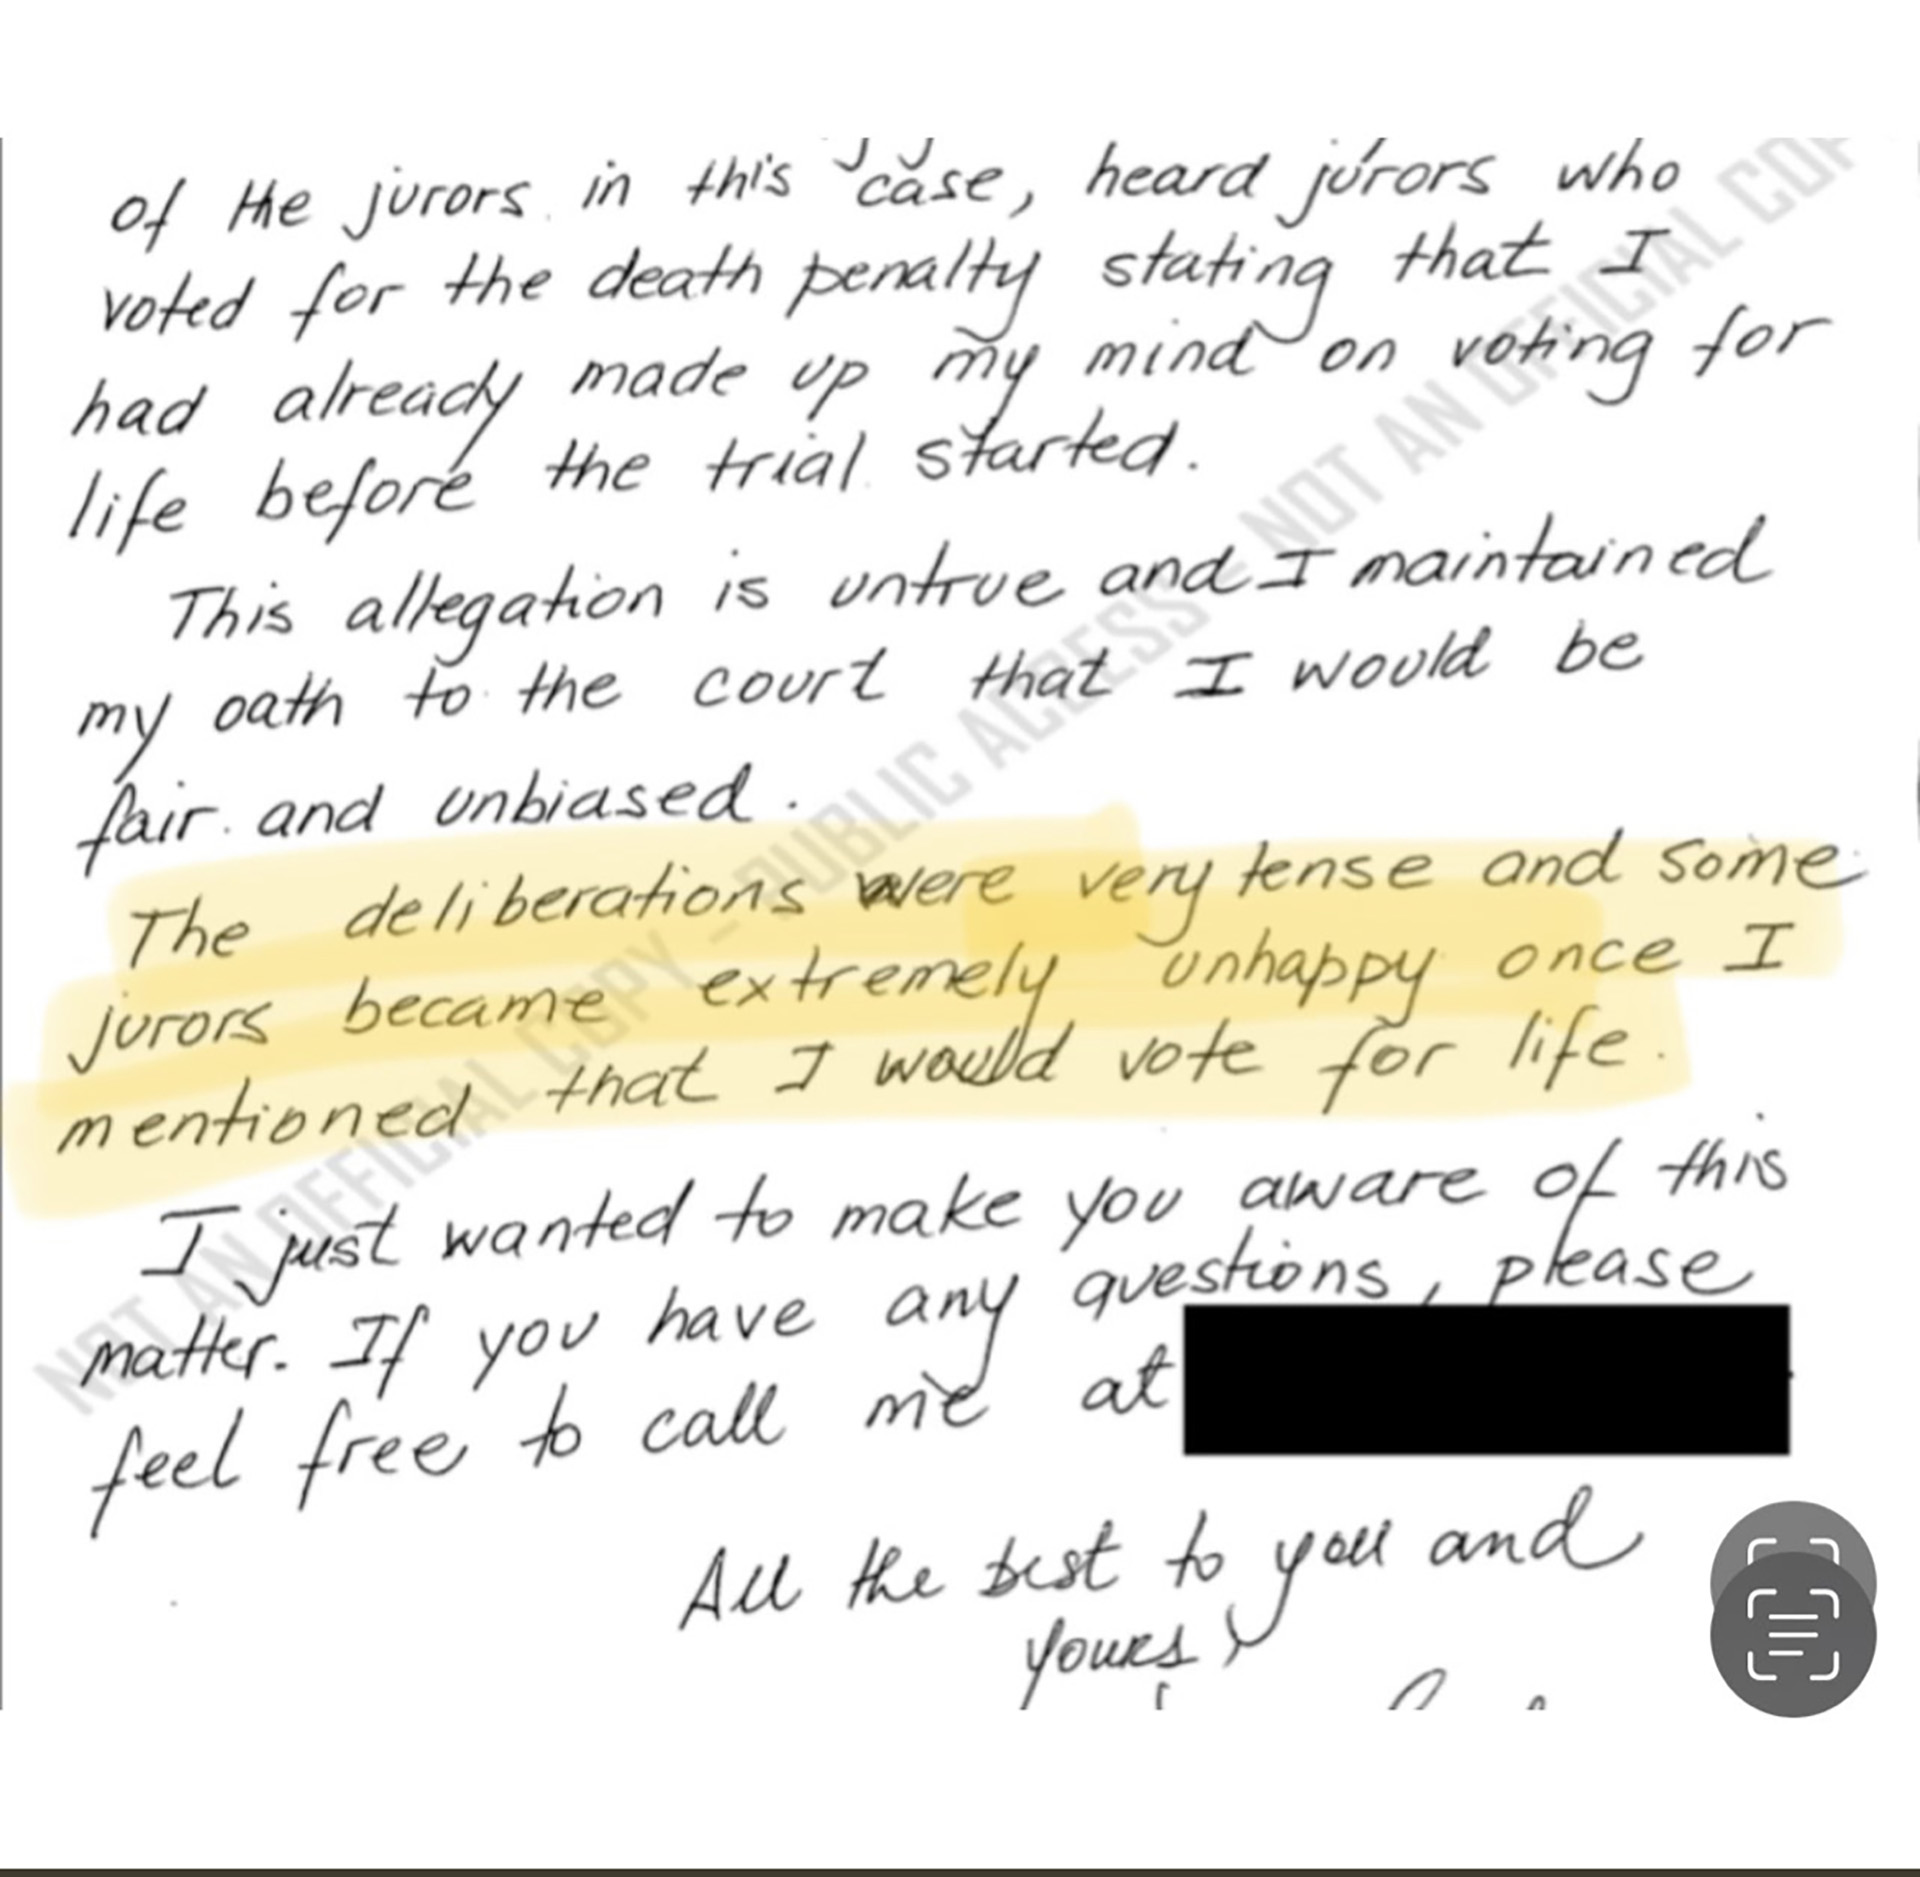 of the jurors in this case, heard jurors who
voted for the death penalty stating that I
had already made up my mind on voting for
life before the trial started.
This allegation is untrue and I maintained
my oath to the court that I would be
fair and unbiased.
The deliberations were very tense and some
jurors became extremely unhappy once I
mentioned that I would vote for life.
I just wanted to make you aware of this
matter. If you have any questions, please
feel free to call me at
All the best to you and
yours,
NOT AN OFFICIAL COPY - PUBLIC ACCESS - NOT AN OFFICIAL COP